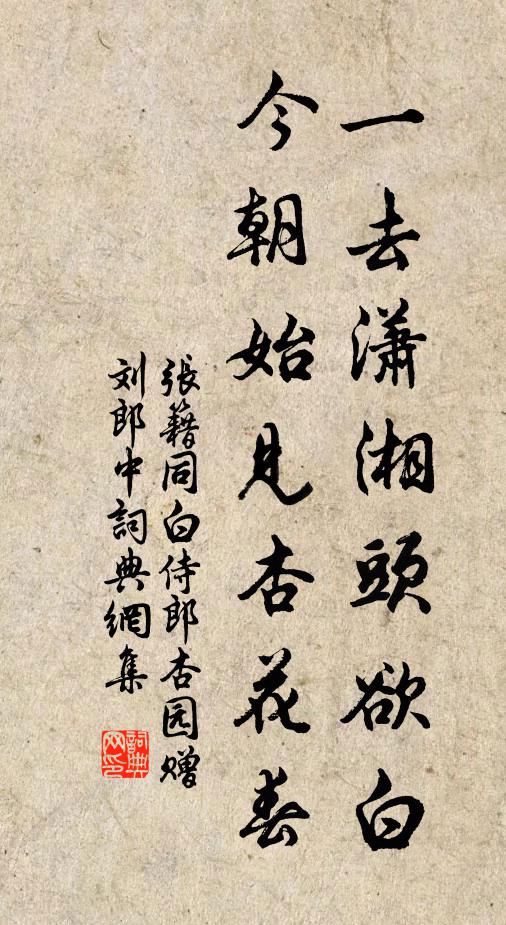 一去瀟湘頭欲白
今朝始見杏花春
張籍同白侍郎杏园赠
刘郎中詞典網集
詞典网印